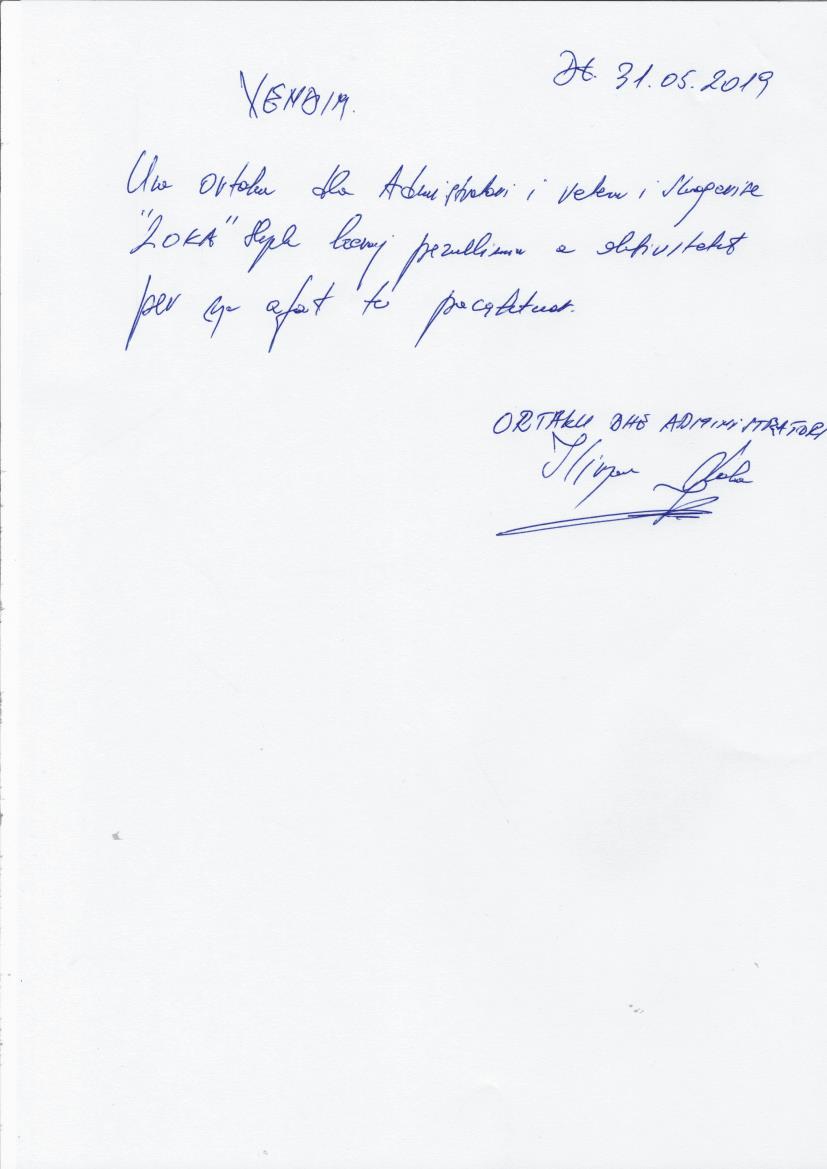 Dt. 31.05.2019
VENDIM.
Une ortaku dhe Administratori i vetem i shoqerise
"ZOKA" shpk pezullimin e aktivitetit
per nje afat te pacaktuar.
ORTAKU DHE ADMINISTRATORI